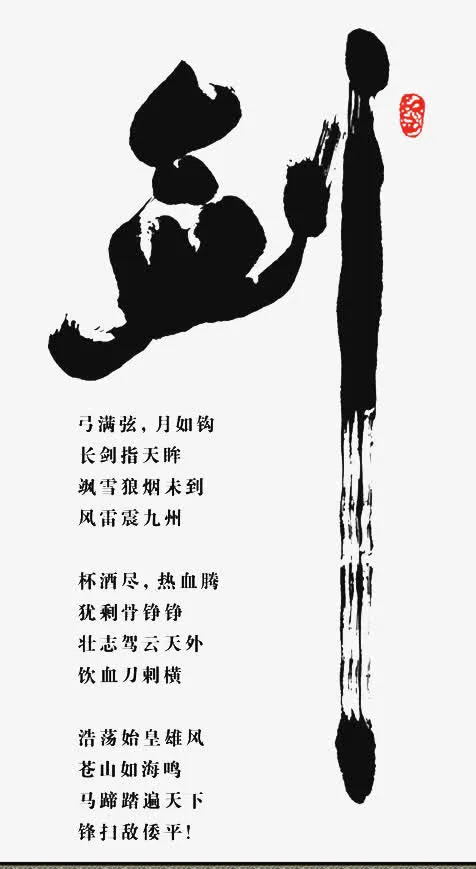 剑
弓满弦，月如钩
长剑指天眸
飒雪狼烟未到
风雷震九州
杯酒尽，热血腾
犹剩骨铮铮
壮志驾云天外
饮血刀刺横
浩荡始皇雄风
苍山如海鸣
马蹄踏遍天下
锋扫敌倭平！